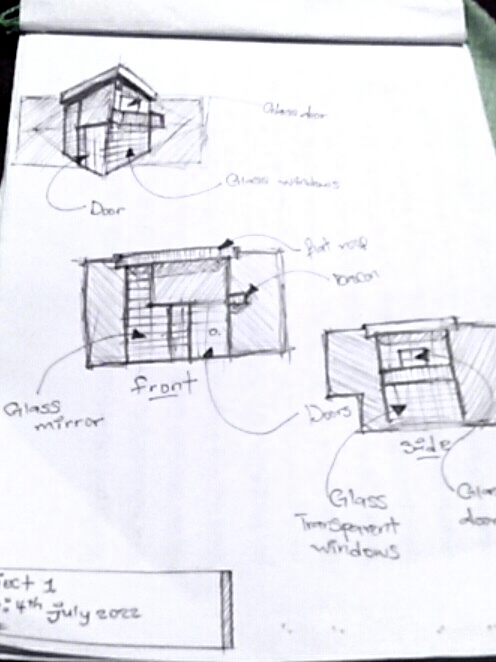 Glass door
Glass windows
Door
flat roof
front
Glass
mirror
Doors
side
Glass
Transparent
windows
ect 1
4th July 2022